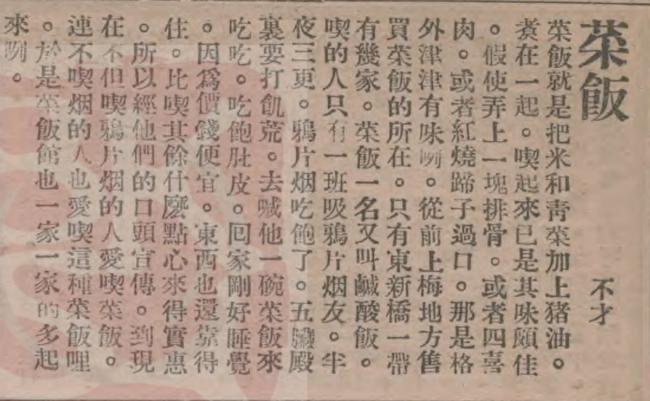 菜飯
不才
菜飯就是把米和靑菜加上猪油。
煑在一起。喫起來已是其味頗佳
。假使弄上一塊排骨。或者四喜
肉。或者紅燒蹄子過口。那是格
外津津有味咧。從前上梅地方售
買菜飯的所在。只有東新橋一帶
有幾家。菜飯一名又叫鹹酸飯。
喫的人只有一班吸鴉片烟友。半
夜三更。鴉片烟吃飽了。五臟殿
裏要打飢荒。去喊他一碗菜飯來
吃吃。吃飽肚皮。囘家剛好睡覺
。因爲價錢便宜。東西也還靠得
住。比喫其餘什麽點心來得實惠
。所以經他們的口頭宣傳。到現
在不但喫鴉片烟的人愛喫菜飯。
連不喫烟的人也愛喫這種菜飯哩
。於是菜飯館也一家一家的多起
來咧。